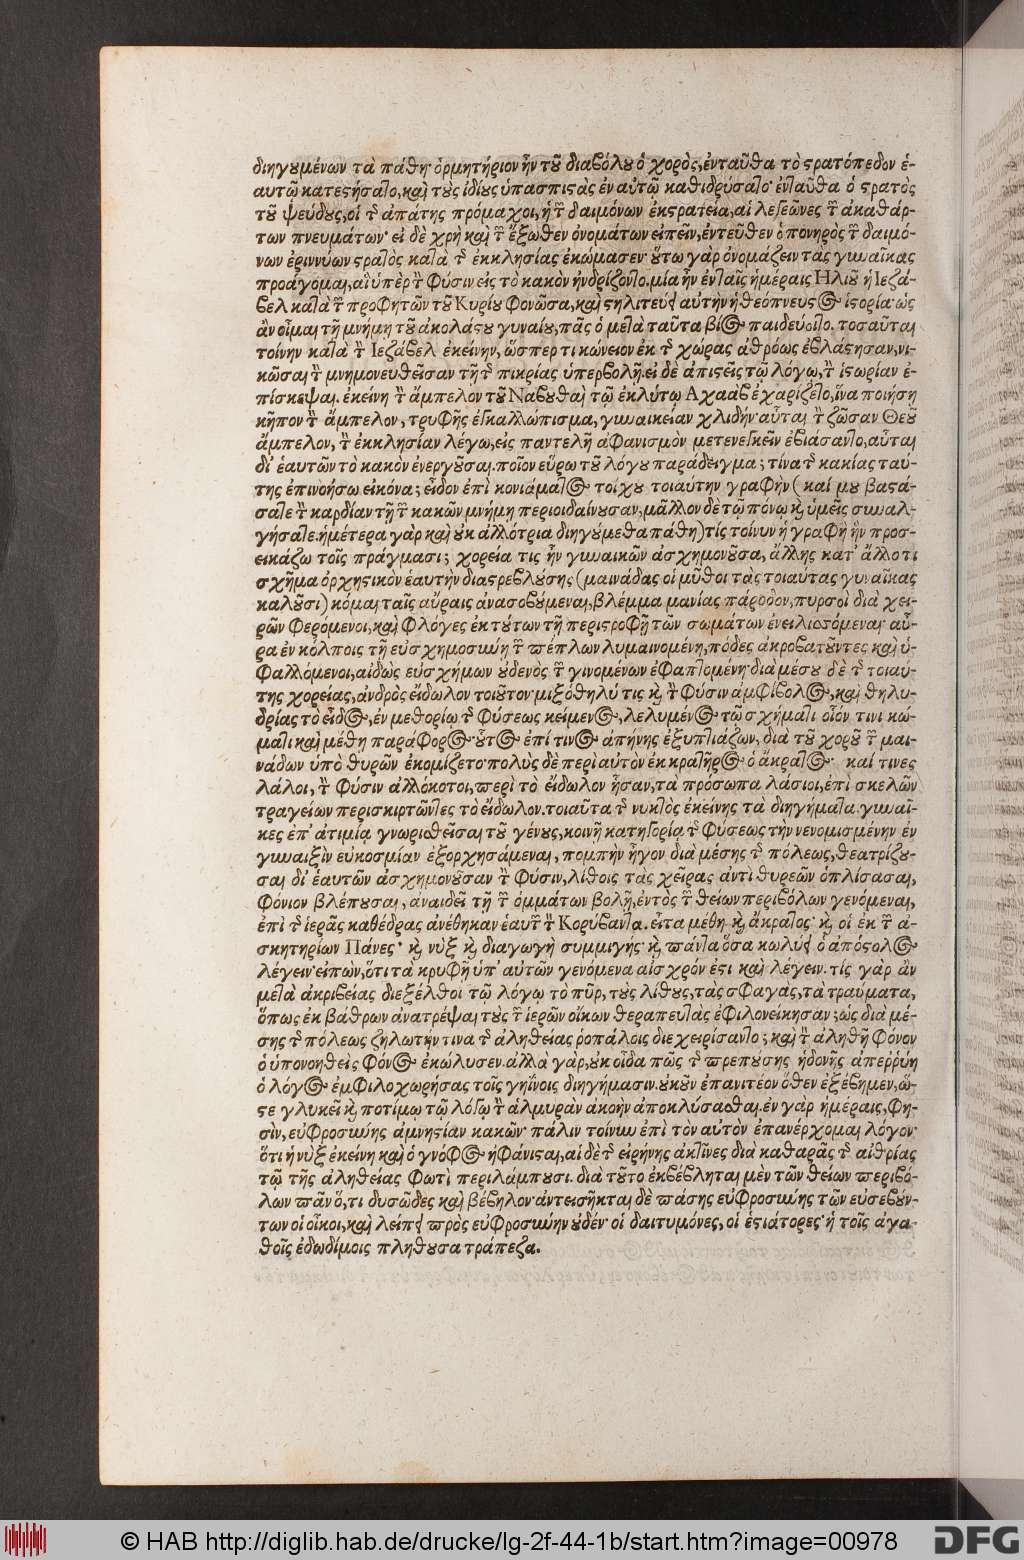 διηγουμένων τὰ πάθη· ὁρμητήριον ἦν τοῦ διαβόλου ὁ χορὸς, ἐνταῦθα τὸ στρατόπεδον ἑ-
αυτῷ κατεστήσατο, καὶ τοὺς ἰδίους ὑπασπιστὰς ἐν αὐτῷ καθιδρύσατο· ἐνταῦθα ὁ στρατὸς
τοῦ ψεύδους, οἱ τῆς ἀπάτης πρόμαχοι, ἡ τῶν δαιμόνων ἐκστρατεία, αἱ λεγεῶνες τῶν ἀκαθάρ-
των πνευμάτων· εἰ δὲ χρὴ καὶ τῶν ἔξωθεν ὀνομάτων εἰπεῖν, ἐντεῦθεν ὁ πονηρὸς τῶν δαιμό-
νων ἐριννύων στρατὸς κατὰ τῆς ἐκκλησίας ἐκώμασεν· οὕτω γὰρ ὀνομάζειν τὰς γυναῖκας
προάγομαι, αἳ ὑπὲρ τὴν φύσιν εἰς τὸ κακὸν ἠνδρίζοντο. μία ἦν ἐν ταῖς ἡμέραις Ηλιοῦ ἡ Ιεζά-
βελ κατὰ τῶν προφητῶν τοῦ Κυρίου φονῶσα, καὶ στηλιτεύει αὐτὴν ἡ θεόπνευστος ἱστορία· ὡς
ἂν οἶμαι τῇ μνήμῃ τοῦ ἀκολάστου γυναίου, πᾶς ὁ μετὰ ταῦτα βίος παιδεύοιτο. τοσαῦται
τοίνυν κατὰ τὴν Ιεζάβελ ἐκείνην, ὥσπερ τι κώνειον ἐκ τῆς χώρας ἀθρόως ἐβλάστησαν, νι-
κῶσαι τὴν μνημονευθεῖσαν τῇ τῆς πικρίας ὑπερβολῇ. εἰ δὲ ἀπιστεῖς τῷ λόγῳ, τὴν ἱστορίαν ἐ-
πίσκεψαι. ἐκείνη τὴν ἄμπελον τοῦ Ναβουθαὶ τῷ ἐκλύτῳ Αχαὰβ ἐχαρίζετο, ἵνα ποιήσῃ
κῆπον τὴν ἄμπελον, τρυφῆς ἐγκαλλώπισμα, γυναικείαν χλιδήν· αὗται τὴν ζῶσαν Θεοῦ
ἄμπελον, τὴν ἐκκλησίαν λέγω, εἰς παντελῆ ἀφανισμὸν μετενεγκεῖν ἐβιάσαντο, αὗται
δι' ἑαυτῶν τὸ κακὸν ἐνεργοῦσαι. ποῖον εὕρω τοῦ λόγου παράδειγμα; τίνα τῆς κακίας ταύ-
της ἐπινοήσω εἰκόνα; εἶδον ἐπὶ κονιάματος τοίχου τοιαύτην γραφὴν (καί μου βαστά-
σατε τὴν καρδίαν τῇ τῶν κακῶν μνήμῃ περιοιδαίνουσαν, μᾶλλον δὲ τῷ πόνῳ καὶ ὑμεῖς συναλ-
γήσατε. ἡμέτερα γὰρ καὶ οὐκ ἀλλότρια διηγούμεθα πάθη) τίς τοίνυν ἡ γραφὴ ἣν προσ-
εικάζω τοῖς πράγμασι; χορεία τις ἦν γυναικῶν ἀσχημονοῦσα, ἄλλης κατ' ἄλλο τι
σχῆμα ὀρχηστικὸν ἑαυτὴν διαστρεβλούσης (μαινάδας οἱ μῦθοι τὰς τοιαύτας γυναῖκας
καλοῦσι) κόμαι ταῖς αὔραις ἀνασοβούμεναι, βλέμμα μανίας πάροδον, πυρσοὶ διὰ χει-
ρῶν φερόμενοι, καὶ φλόγες ἐκ τούτων τῇ περιστροφῇ τῶν σωμάτων ἐνειλισσόμεναι· αὖ-
ρα ἐν κόλποις τῇ εὐσχημοσύνῃ τῶν πέπλων λυμαινομένη, πόδες ἀκροβατοῦντες καὶ ὑ-
φαλλόμενοι, αἰδὼς εὐσχήμων οὐδενὸς τῶν γινομένων ἐφαπτομένη· διὰ μέσου δὲ τῆς τοιαύ-
της χορείας, ἀνδρὸς εἴδωλον τοιοῦτον· μιξόθηλύ τις καὶ τὴν φύσιν ἀμφίβολος, καὶ θηλυ-
δρίας τὸ εἶδος, ἐν μεθορίῳ τῆς φύσεως κείμενος, λελυμένος τῷ σχήματι οἷόν τινι κώ-
ματι καὶ μέθῃ παράφορος· οὗτος ἐπί τινος ἀπήνης ἐξυπτιάζων, διὰ τοῦ χοροῦ τῶν μαι-
νάδων ὑπὸ θυρῶν ἐκομίζετο· πολὺς δὲ περὶ αὐτὸν ἐκ κρατῆρος ὁ ἄκρατος· καί τινες
λάλοι, τὴν φύσιν ἀλλόκοτοι, περὶ τὸ εἴδωλον ἦσαν, τὰ πρόσωπα λάσιοι, ἐπὶ σκελῶν
τραγείων περισκιρτῶντες τὸ εἴδωλον. τοιαῦτα τῆς νυκτὸς ἐκείνης τὰ διηγήματα. γυναῖ-
κες ἐπ' ἀτιμίᾳ γνωρισθεῖσαι τοῦ γένους, κοινῇ κατηγορίᾳ τῆς φύσεως τὴν νενομισμένην ἐν
γυναιξὶν εὐκοσμίαν ἐξορχησάμεναι, πομπὴν ἦγον διὰ μέσης τῆς πόλεως, θεατρίζου-
σαι δι' ἑαυτῶν ἀσχημονοῦσαν τὴν φύσιν, λίθοις τὰς χεῖρας ἀντὶ θυρεῶν ὁπλίσασαι,
φόνιον βλέπουσαι, ἀναιδεῖ τῇ τῶν ὀμμάτων βολῇ, ἐντὸς τῶν θείων περιβόλων γενόμεναι,
ἐπὶ τῆς ἱερᾶς καθέδρας ἀνέθηκαν ἑαυτῶν τὸν Κορύβαντα. εἶτα μέθη καὶ ἄκρατος· καὶ οἱ ἐκ τῶν ἀ-
σκητηρίων Πάνες· καὶ νὺξ καὶ διαγωγὴ συμμιγής· καὶ πάντα ὅσα κωλύει ὁ ἀπόστολος
λέγειν· εἰπὼν, ὅτι τὰ κρυφῇ ὑπ' αὐτῶν γενόμενα αἰσχρόν ἐστι καὶ λέγειν. τίς γὰρ ἂν
μετὰ ἀκριβείας διεξέλθοι τῷ λόγῳ τὸ πῦρ, τοὺς λίθους, τὰς σφαγὰς, τὰ τραύματα,
ὅπως ἐκ βάθρων ἀνατρέψαι τοὺς τῶν ἱερῶν οἴκων θεραπευτὰς ἐφιλονείκησαν; ὡς διὰ μέ-
σης τῆς πόλεως ζηλωτήν τινα τῆς ἀληθείας ῥοπάλοις διεχειρίσαντο; καὶ τὸν ἀληθῆ φόνον
ὁ ὑπονοηθεὶς φόνος ἐκώλυσεν. ἀλλὰ γὰρ, οὐκ οἶδα πῶς τῆς πρεπούσης ἡδονῆς ἀπερρύη
ὁ λόγος ἐμφιλοχωρήσας τοῖς γηΐνοις διηγήμασιν. οὐκοῦν ἐπανιτέον ὅθεν ἐξέβημεν, ὥ-
στε γλυκεῖ καὶ ποτίμῳ τῷ λόγῳ τὴν ἁλμυρὰν ἀκοὴν ἀποκλύσασθαι. ἐν γὰρ ἡμέραις, φη-
σὶν, εὐφροσύνης ἀμνηστίαν κακῶν· πάλιν τοίνυν ἐπὶ τὸν αὐτὸν ἐπανέρχομαι λόγον·
ὅτι ἡ νὺξ ἐκείνη καὶ ὁ γνόφος ἠφάνισται, αἱ δὲ τῆς εἰρήνης ἀκτῖνες διὰ καθαρᾶς τῆς αἰθρίας
τῷ τῆς ἀληθείας φωτὶ περιλάμπουσι. διὰ τοῦτο ἐκβέβληται μὲν τῶν θείων περιβό-
λων πᾶν ὅ, τι δυσῶδες καὶ βέβηλον· ἀντεισῆκται δὲ πάσης εὐφροσύνης τῶν εὐσεβούν-
των οἱ οἶκοι, καὶ λείπει πρὸς εὐφροσύνην οὐδέν· οἱ δαιτυμόνες, οἱ ἑστιάτορες· ἡ τοῖς ἀγα-
θοῖς ἐδωδίμοις πλήθουσα τράπεζα.
© HAB http://diglib.hab.de/drucke/lg-2f-44-1b/start.htm?image=00978
DFG